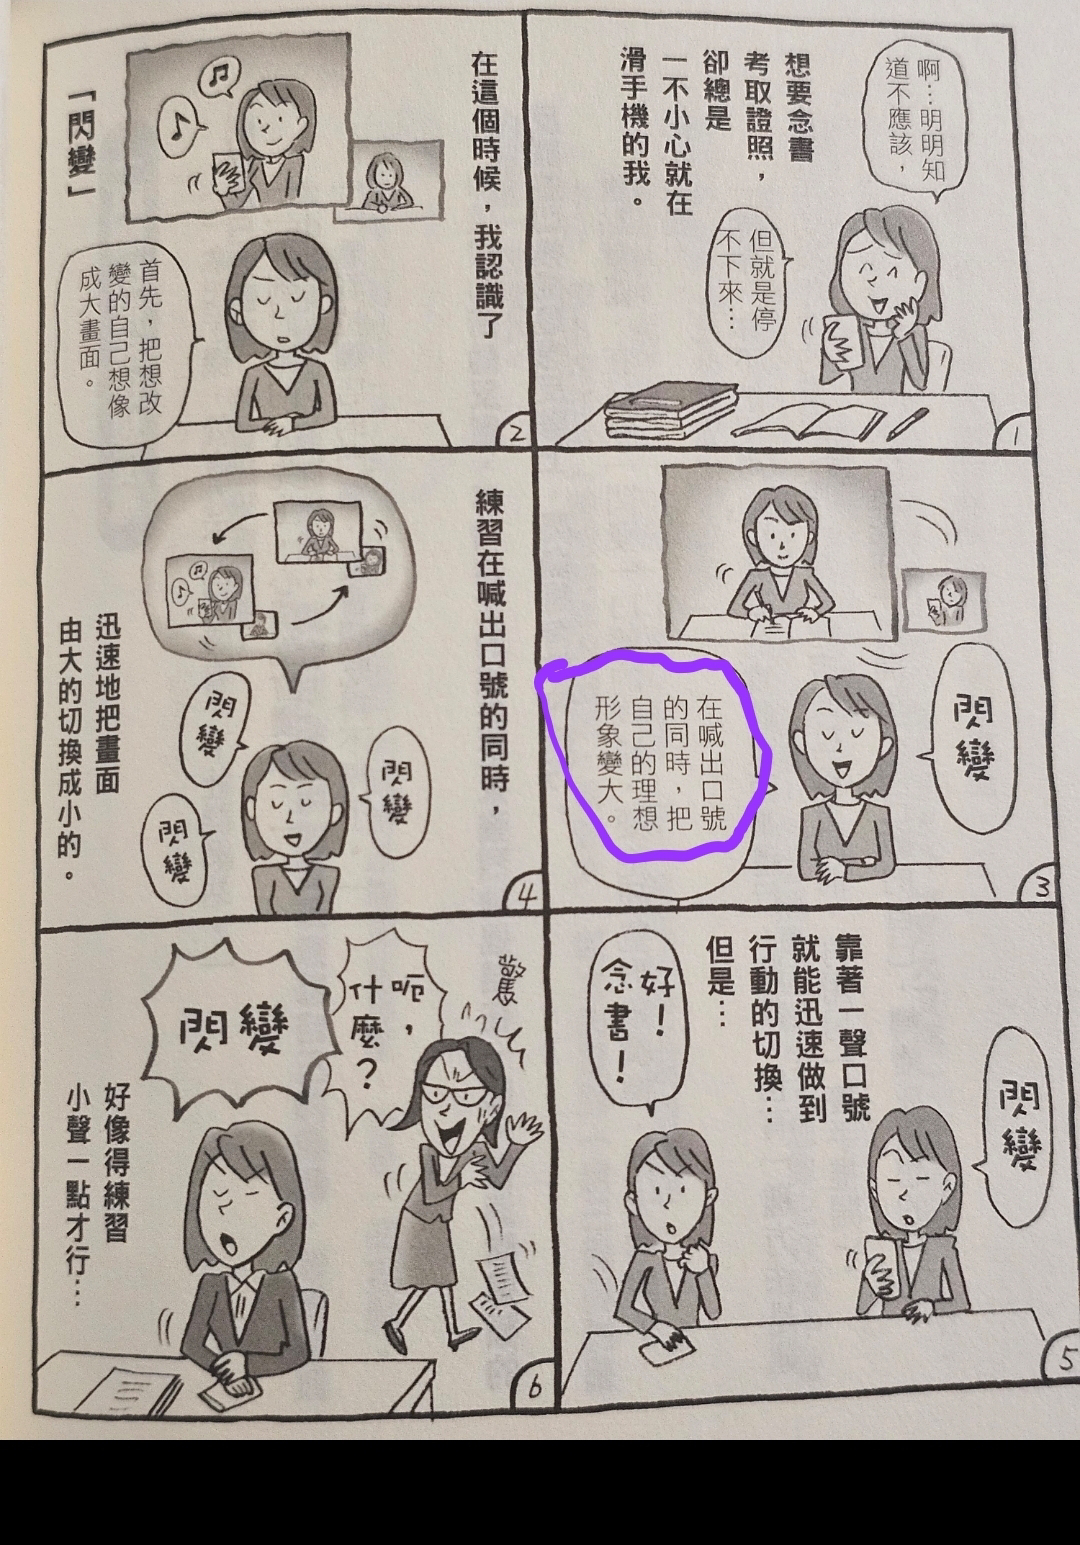 啊…明明知
道不應該，
想要念書
考取證照，
卻總是
一不小心就在
滑手機的我。
但就是停
不下來…
1
在這個時候，我認識了
「閃變」
首先，把想改
變的自己想像
成大畫面。
2
閃變
在喊出口號
的同時，把
自己的理想
形象變大。
3
練習在喊出口號的同時，
迅速地把畫面
由大的切換成小的。
閃變
閃變
閃變
4
靠著一聲口號
就能迅速做到
行動的切換…
但是…
閃變
好！
念書！
5
驚
呃，
什麼？
閃變
好像得練習
小聲一點才行…
6